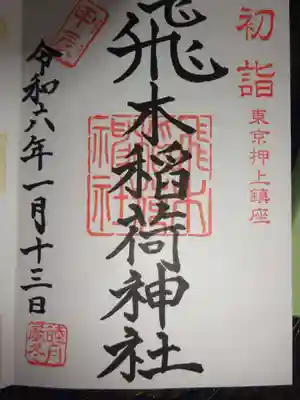 初詣
東京押上鎮座
飛木稲荷神社
甲辰
令和六年一月十三日
睦月